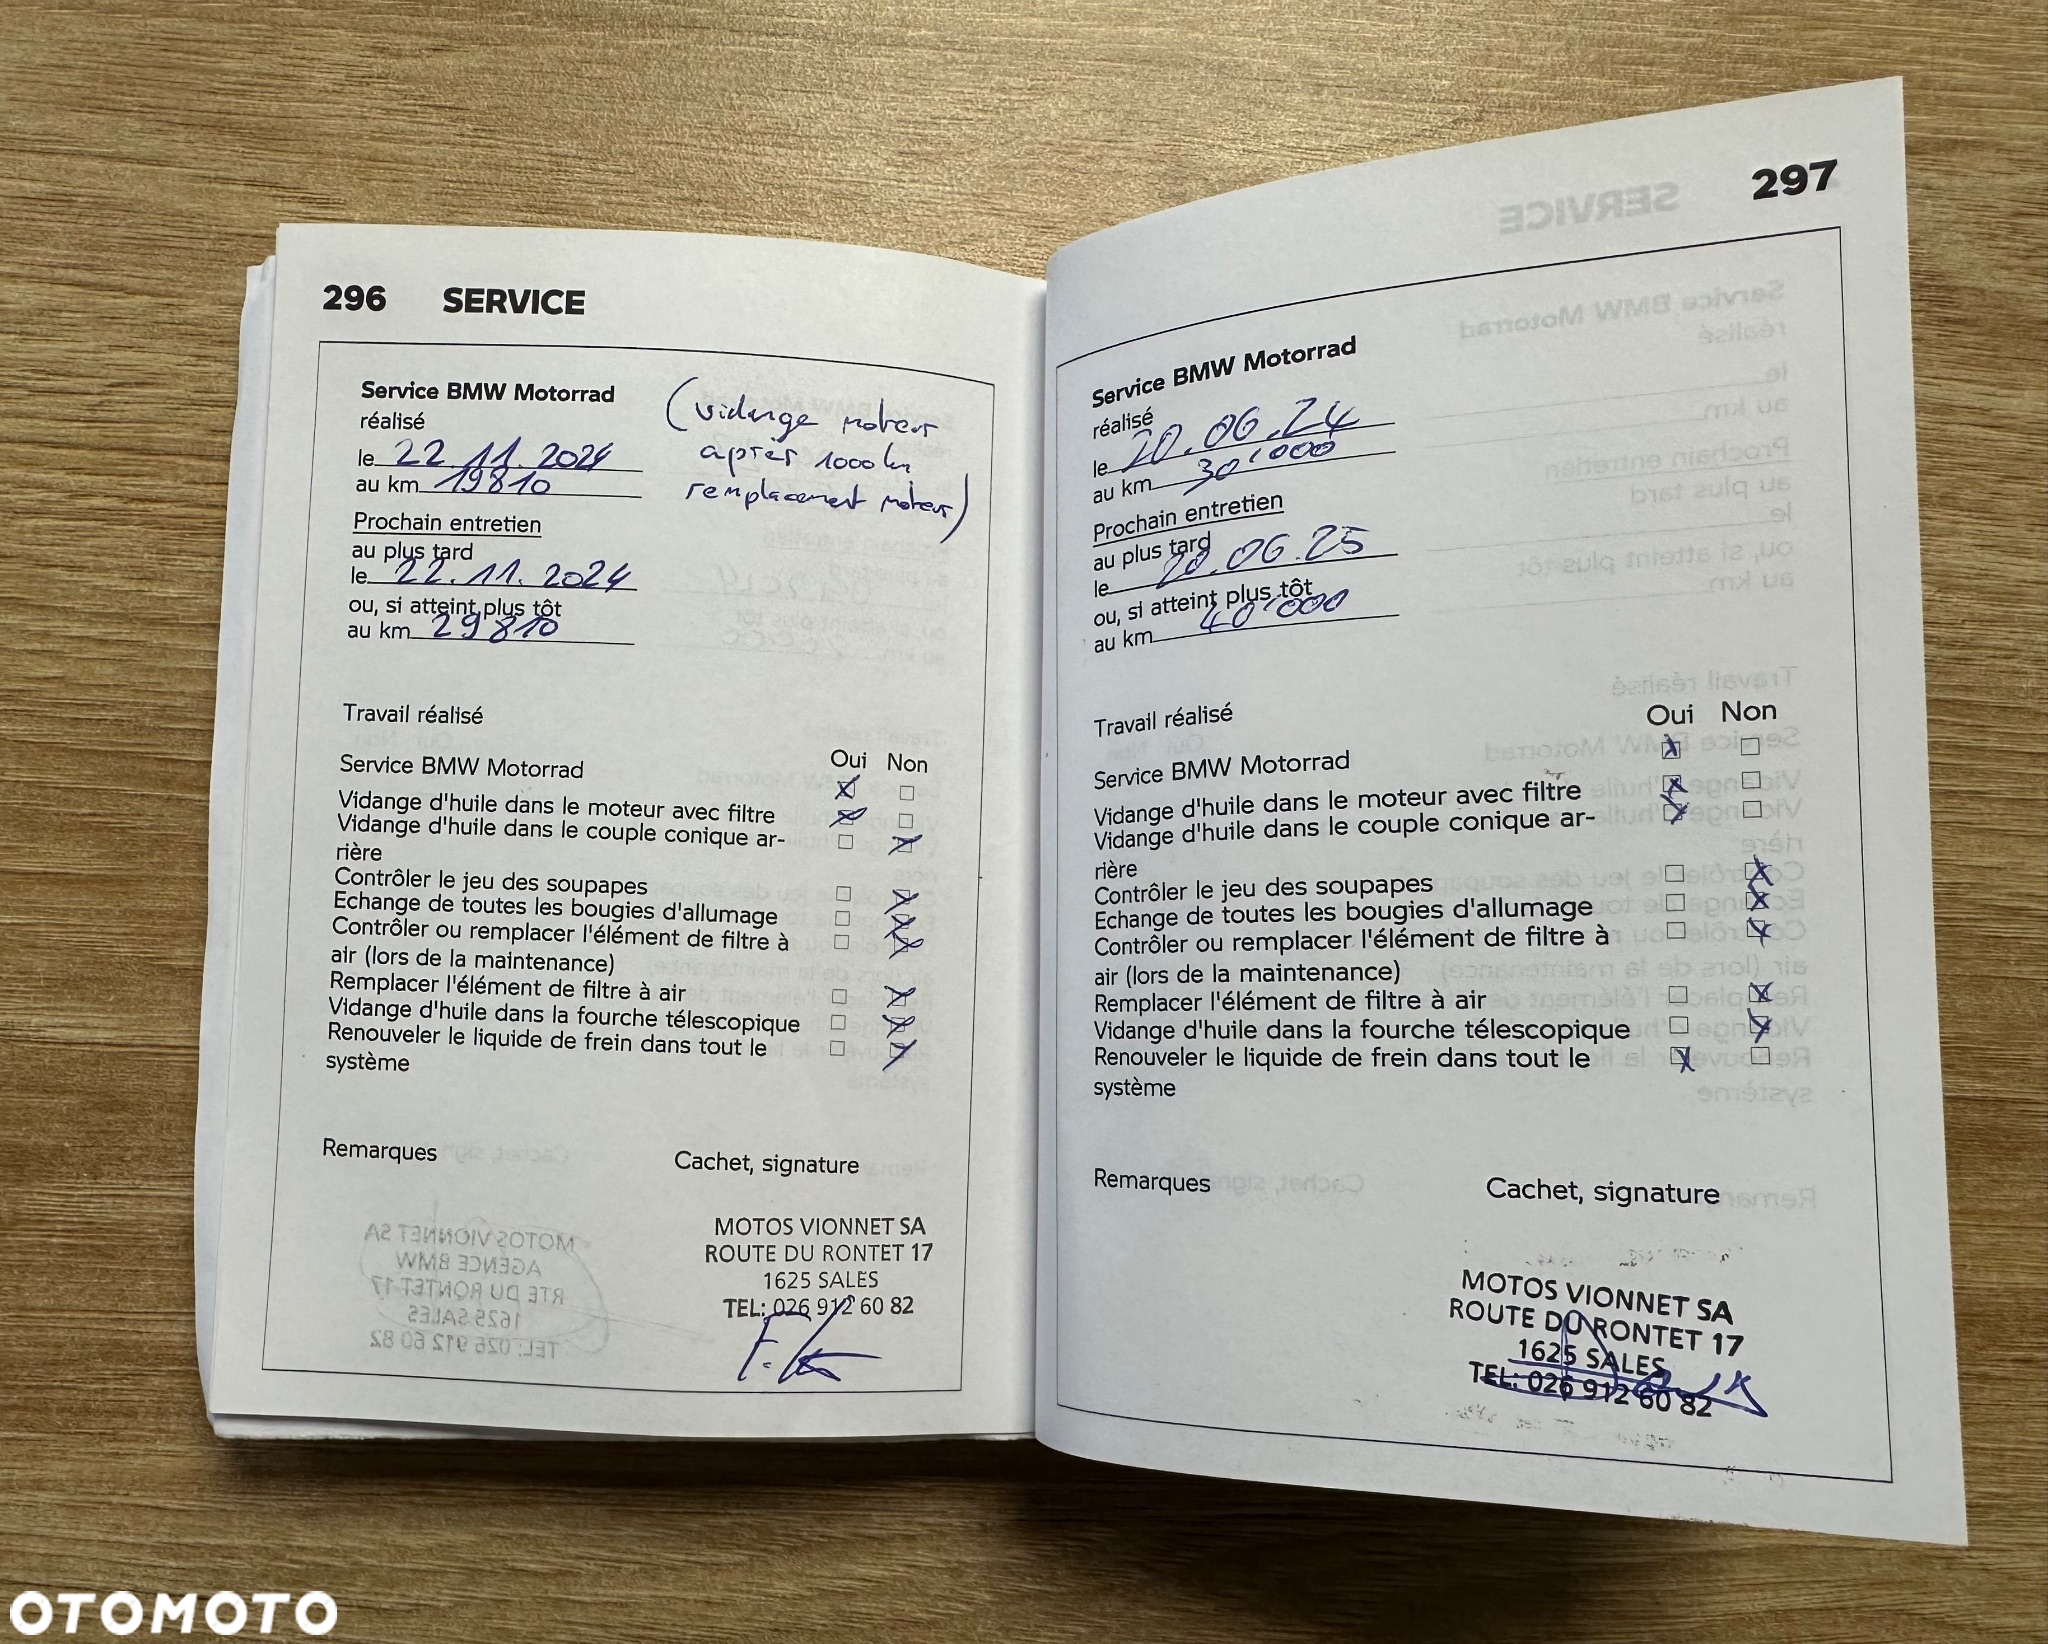 296 SERVICE
Service BMW Motorrad
réalisé
le 22.11.2024
au km 19810
(vidange moteur
après 1000 km
remplacement moteur)
Prochain entretien
au plus tard
le 22.11.2024
ou, si atteint plus tôt
au km 29810
Travail réalisé
Oui Non
Service BMW Motorrad
Vidange d'huile dans le moteur avec filtre
Vidange d'huile dans le couple conique ar-
rière
Contrôler le jeu des soupapes
Echange de toutes les bougies d'allumage
Contrôler ou remplacer l'élément de filtre à
air (lors de la maintenance)
Remplacer l'élément de filtre à air
Vidange d'huile dans la fourche télescopique
Renouveler le liquide de frein dans tout le
système
Remarques
Cachet, signature
MOTOS VIONNET SA
AGENCE BMW
RTE DU RONTET 17
1625 SALES
TEL: 026 912 60 82
MOTOS VIONNET SA
ROUTE DU RONTET 17
1625 SALES
TEL: 026 912 60 82
297
SERVICE
Service BMW Motorrad
réalisé
le 20.06.24
au km 30'000
Prochain entretien
au plus tard
le 20.06.25
ou, si atteint plus tôt
au km 40'000
Travail réalisé
Oui Non
Service BMW Motorrad
Vidange d'huile dans le moteur avec filtre
Vidange d'huile dans le couple conique ar-
rière
Contrôler le jeu des soupapes
Echange de toutes les bougies d'allumage
Contrôler ou remplacer l'élément de filtre à
air (lors de la maintenance)
Remplacer l'élément de filtre à air
Vidange d'huile dans la fourche télescopique
Renouveler le liquide de frein dans tout le
système
Remarques
Cachet, signature
MOTOS VIONNET SA
ROUTE DU RONTET 17
1625 SALES
TEL: 026 912 60 82
OTOMOTO